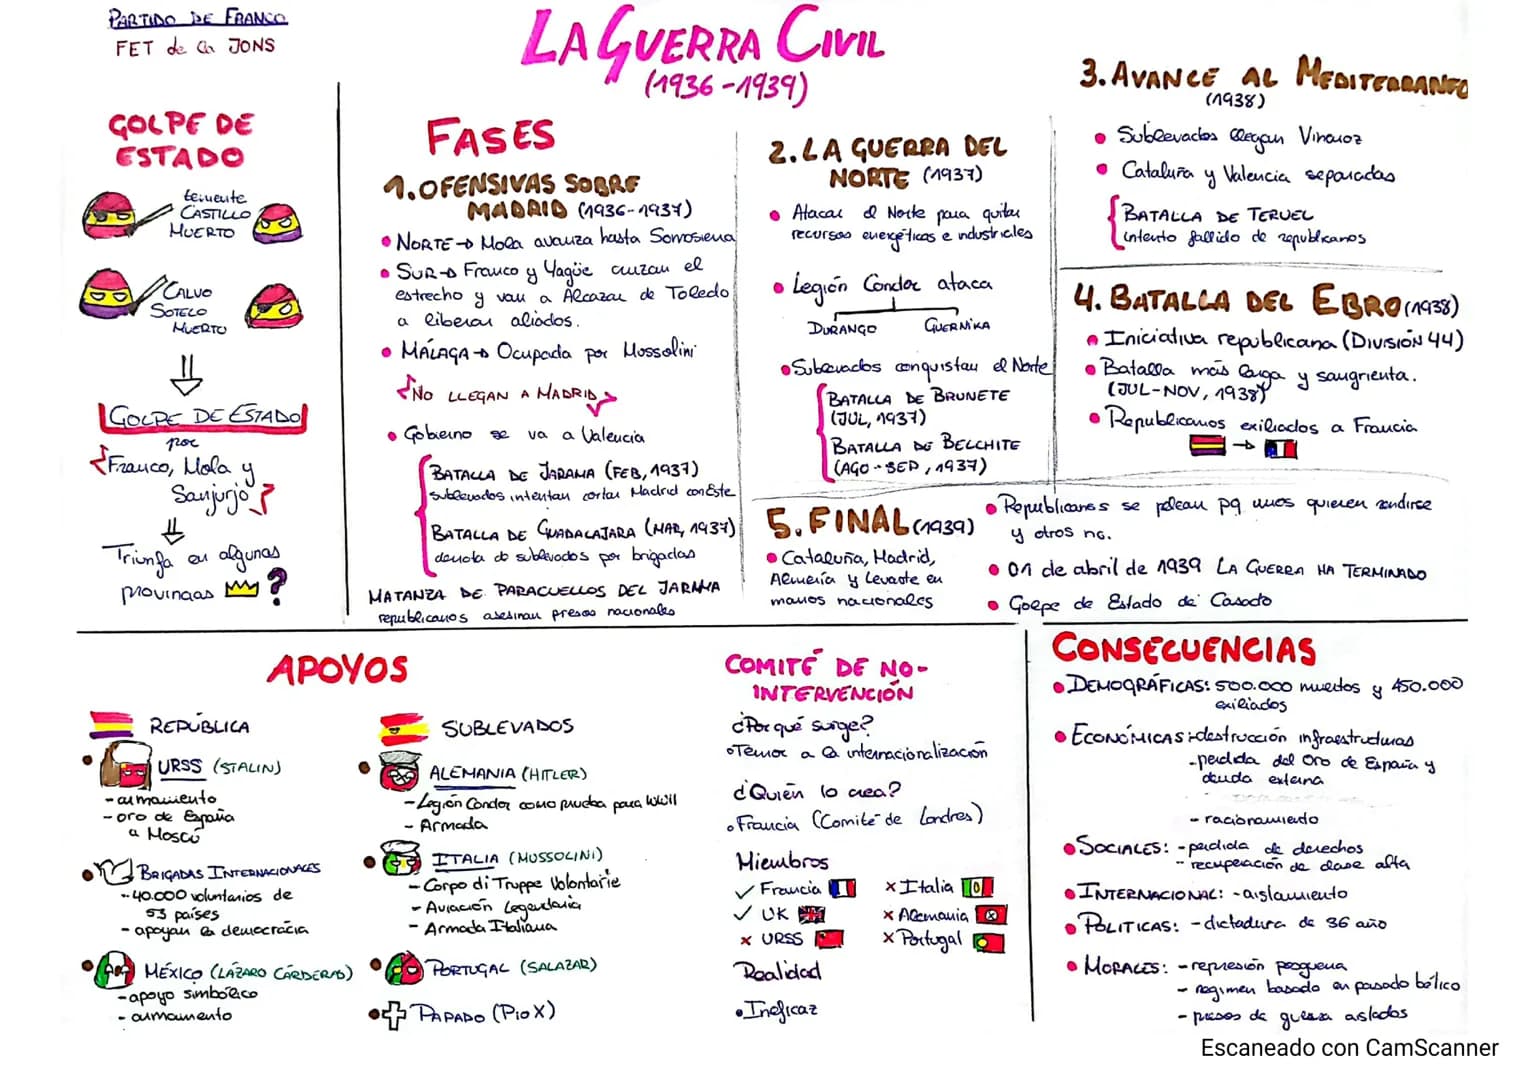 PARTIDO DE FRANCO
FET de la JONS
LA GUERRA CIVIL
(1936-1939)
GOLPE DE
ESTADO
teniente
CASTILLO
MUERTO
CALVO
SOTELO
MUERTO
GOLPE DE ESTADO
por
Franco, Mola y
Sanjurjo
Triunfa en algunas
provincias ?
FASES
1. OFENSIVAS SOBRE
MADRID (1936-1937)
NORTE → Mola avanza hasta Somosierra
SUR → Franco y Yagüe cruzan el
estrecho y van a Alcazar de Toledo
a liberar aliados.
MÁLAGA → Ocupada por Mussolini
NO LLEGAN A MADRID
Gobierno se va a Valencia
BATALLA DE JARAMA (FEB, 1937)
sublevados intentan cortar Madrid con Este
BATALLA DE GUADALAJARA (MAR, 1937)
derrota de sublevados por brigadas
MATANZA DE PARACUELLOS DEL JARAMA
republicanos asesinan presos nacionales
2. LA GUERRA DEL
NORTE (1937)
Atacar el Norte para quitar
recursos energéticos e industriales
Legión Condor ataca
DURANGO GUERNIKA
Sublevados conquistan el Norte
BATALLA DE BRUNETE
(JUL, 1937)
BATALLA DE BELCHITE
(AGO-SEP, 1937)
3. AVANCE AL MEDITERRANEO
(1938)
Sublevados llegan Vinaroz
Cataluña y Valencia separadas
BATALLA DE TERUEL
intento fallido de republicanos
4. BATALLA DEL EBRO (1938)
Iniciativa republicana (DIVISIÓN 44)
Batalla más larga y sangrienta.
(JUL-NOV, 1938)
Republicanos exiliados a Francia
→
5. FINAL (1939)
Cataluña, Madrid,
Almería y Levante en
manos nacionales
Republicanos se pelean pq unos quieren rendirse
y otros no.
01 de abril de 1939 LA GUERRA HA TERMINADO
Golpe de Estado de Casado
APOYOS
REPÚBLICA
URSS (STALIN)
- armamento
- oro de España
a Moscú
BRIGADAS INTERNACIONALES
- 40.000 voluntarios de
53 países
- apoyan la democracia
MÉXICO (LÁZARO CÁRDENAS)
- apoyo simbólico
- armamento
SUBLEVADOS
ALEMANIA (HITLER)
- Legión Condor como prueba para WWII
- Armada
ITALIA (MUSSOLINI)
- Corpo di Truppe Volontarie
- Aviación Legendaria
- Armada Italiana
PORTUGAL (SALAZAR)
PAPADO (PIO X)
COMITÉ DE NO-
INTERVENCIÓN
¿Por qué surge?
Temor a la internacionalización
¿Quién lo crea?
Francia (Comité de Londres)
Miembros
✓ Francia × Italia
✓ UK × Alemania
× URSS × Portugal
Realidad
Ineficaz
CONSECUENCIAS
DEMOGRÁFICAS: 500.000 muertos y 450.000
exiliados
ECONÓMICAS: -destrucción infraestructuras
- perdida del Oro de España y
deuda externa
- racionamiento
SOCIALES: - perdida de derechos
- recuperación de clase alta
INTERNACIONAL: - aislamiento
POLITICAS: - dictadura de 36 año
MORALES: - represión
- regimen basado en pasado bélico
- presos de guerra aislados
Escaneado con CamScanner